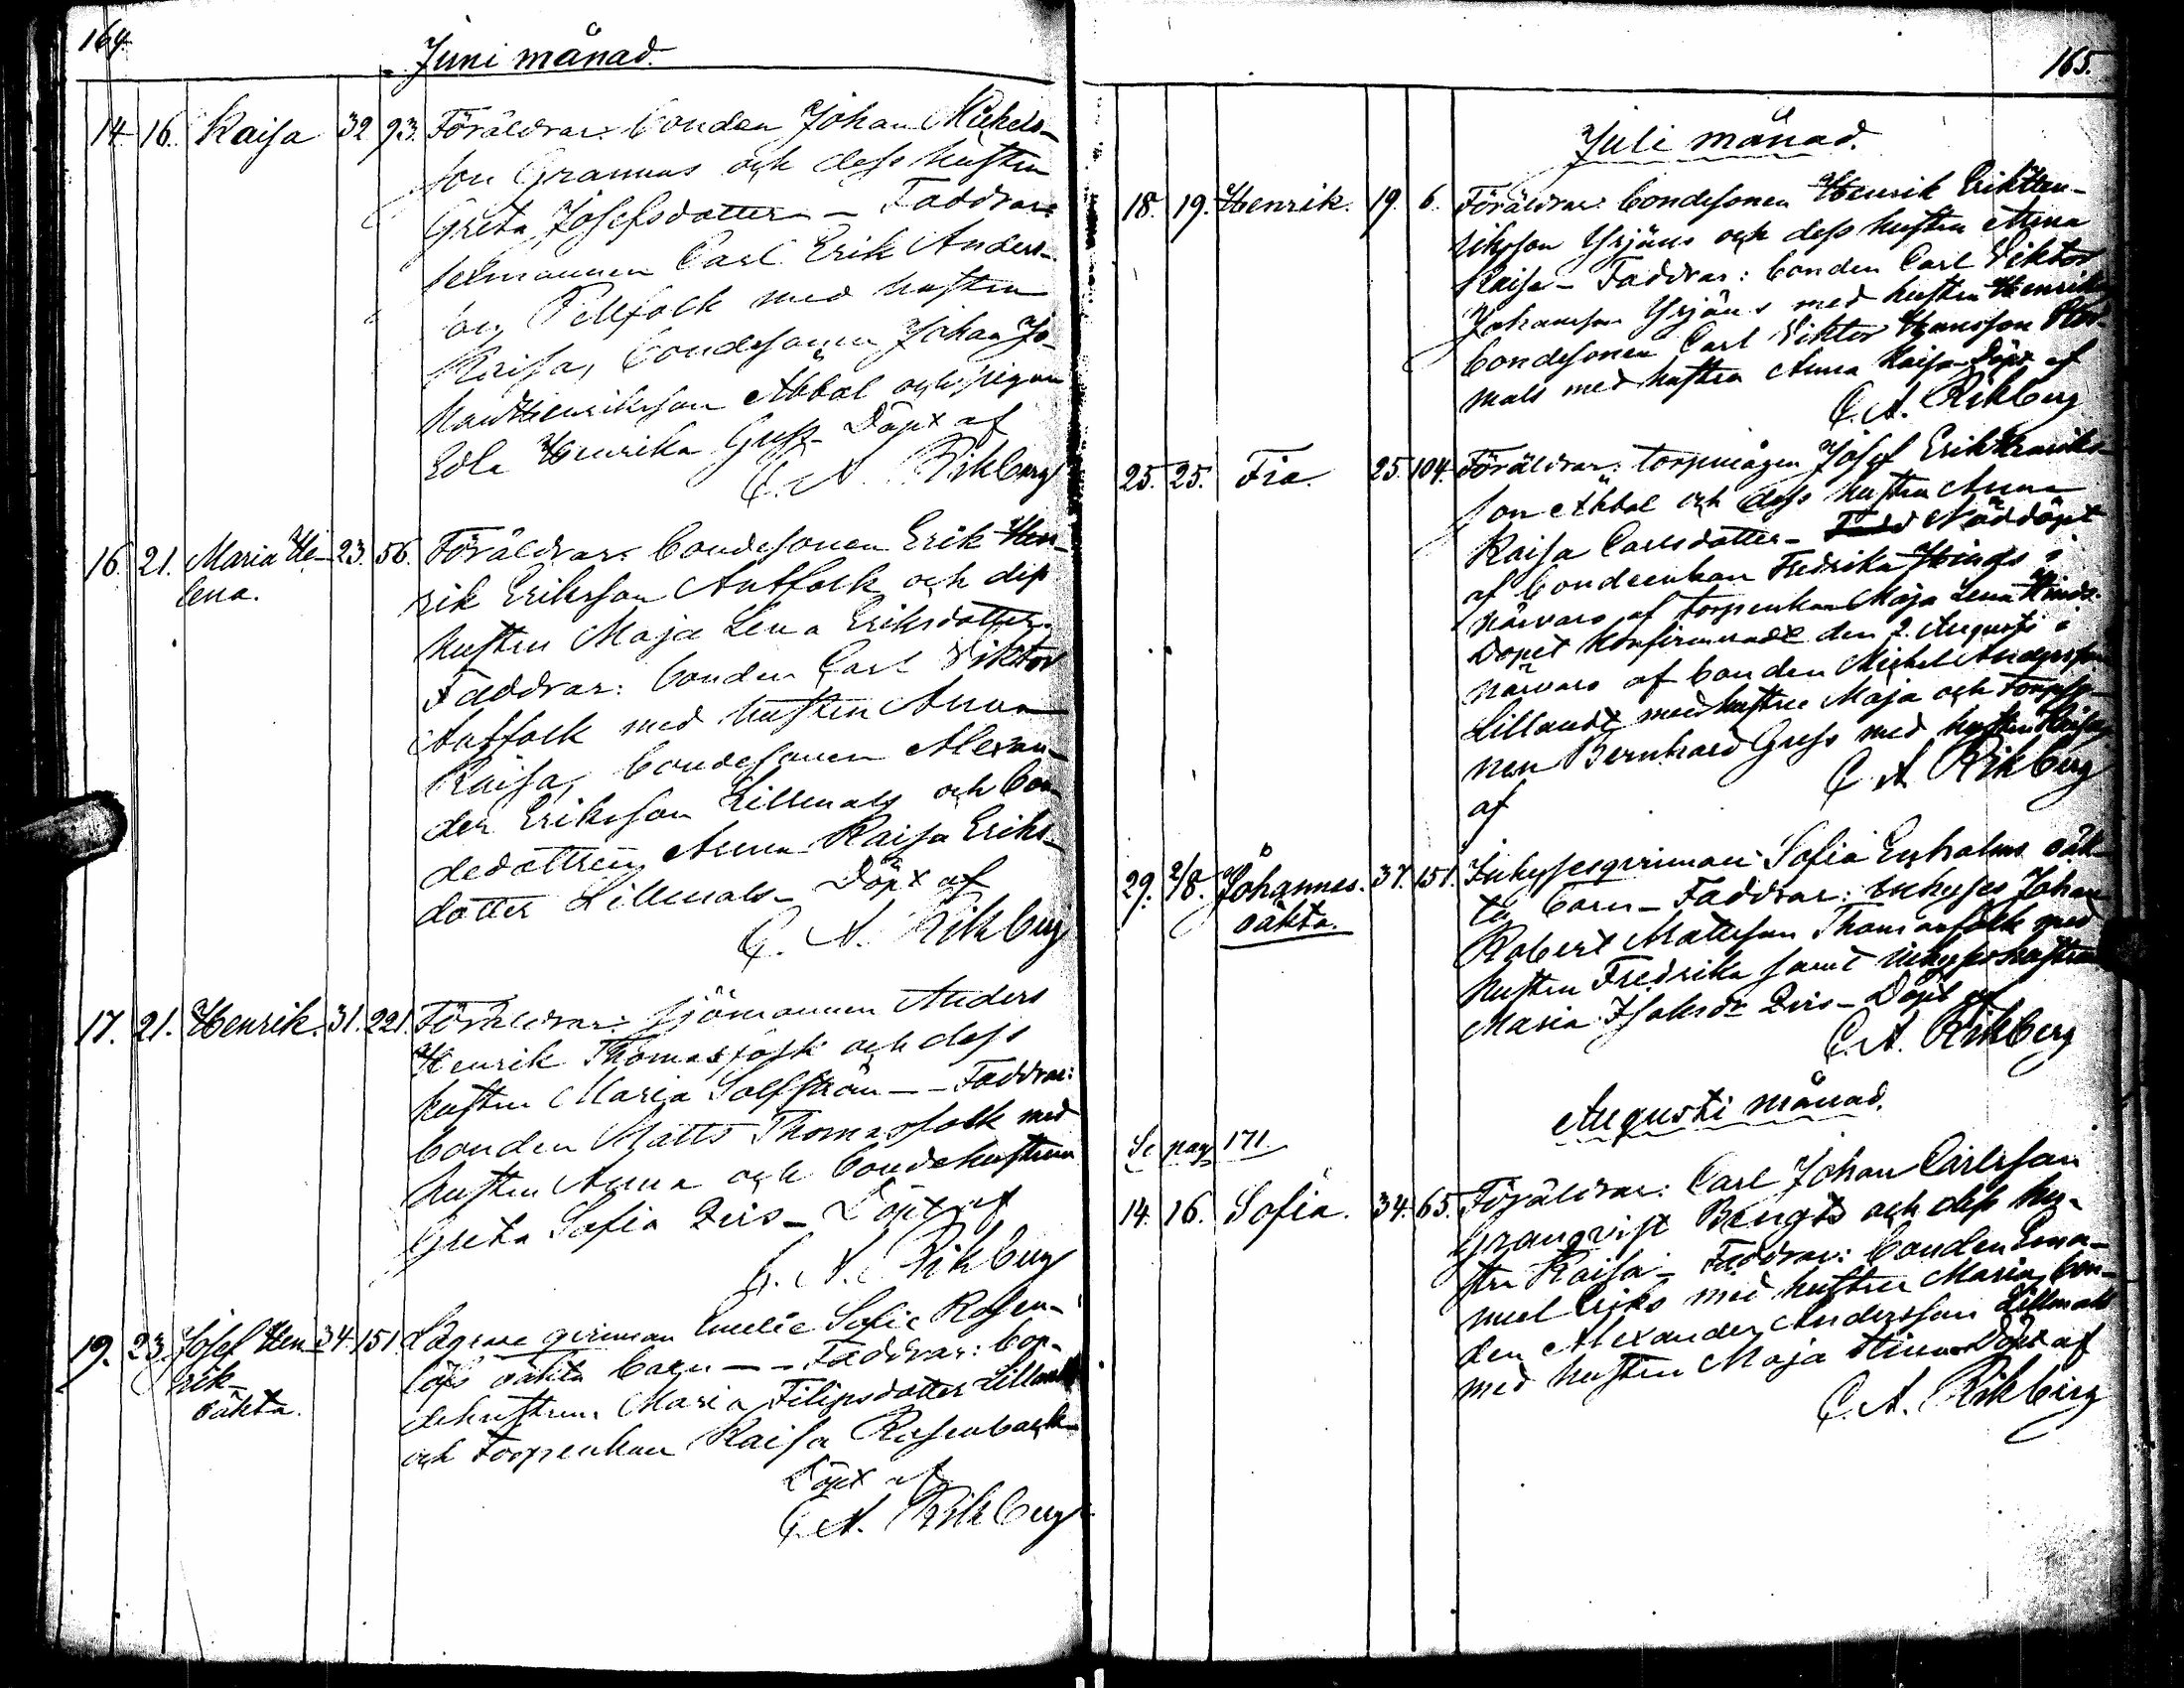 164.
Juni månad.
14. 16. Kaisa 32. 93. Föräldrar: bonden Johan Mickels-
son Grannas och dess hustru
Greta Josefsdotter - Faddrar:
Carl Erik Anders-
son Pellfolk med hustru
Kaisa, bondesonen Johan Jo-
Henriksson Abbal och pigan
Edla Henrika Guss - Döpt af
C. A. Rikberg
16. 21. Maria He- 23. 56. Föräldrar: bondesonen Erik Hen-
lena.
rik Eriksson Antfolk och dess
hustru Maja Lena Eriksdotter.
Faddrar: bonden Carl Viktor
Antfolk med hustru Anna
Kaisa, bondesonen Alexan-
der Eriksson Lillmals och bon-
dedottren Anna Kaisa Eriks-
dotter Lillmals - Döpt af
C. A. Rikberg
17. 21. Henrik. 31. 221. Föräldrar: sjömannen Anders
Henrik Thomasfolk och dess
hustru Maria Solfström - - Faddrar:
bonden Matts Thomasfolk med
hustru Anna och bondehustrun
Greta Sofia - Döpt af
C. A. Rikberg
19. 23. Josef Hen- 34. 151. Lägrade qvinnan Emelie Sofie Rosen-
rik
löfs oäkta barn - - Faddrar: bon-
oäkta.
dehustrun Maria Filipsdotter Lillmals
och torpenkan Kaisa Rosenback
Döpt af
C. A. Rikberg
165.
Juli månad.
18. 19. Henrik. 19. 6. Föräldrar: bondesonen Henrik Erik Hen-
riksson Yrjäns och dess hustru Anna
Kaisa - Faddrar: bonden Carl Viktor
Johansson Yrjäns med hustru Henrika
bondesonen Carl Viktor Hansson
mals med hustru Anna Kaisa - Döpt af
C. A. Rikberg
25. 25. Fia. 25. 104. Föräldrar: torpmågen Josef Erik Henriks-
son Abbal och dess hustru Anna
Kaisa Carlsdotter - Fadd Nöddöpt
af bondeenkan Fredrika Hinds i
närvaro af torpenkan Maja Lena Hinds.
Dopet konfirmeradt den 2. Augusti i
närvaro af bonden Mickel Andersson
Lillandt med hustru Maja och torpa-
ren Bernhard Guss med hustru Kaisa,
af C. A. Rikberg
29. 2/8. Johannes. 37. 151. Inhyseqvinnan Sofia Enholms oäk-
oäkta.
ta barn - Faddrar: inhyses Johan
Robert Mattsson Thomasfolk med
hustru Fredrika samt inhyseshustrun
Maria - Döpt af
C. A. Rikberg
Augusti månad.
Se pag 171
14. 16. Sofia. 34. 65. Föräldrar: Carl Johan Carlsson
Granqvist Bengts och dess hu-
stru Kaisa - Faddrar: bonden Ema-
nuel Eriks med hustru Maria, bon-
den Alexander Andersson Lillmals
med hustru Maja Stina - Döpt af
C. A. Rikberg